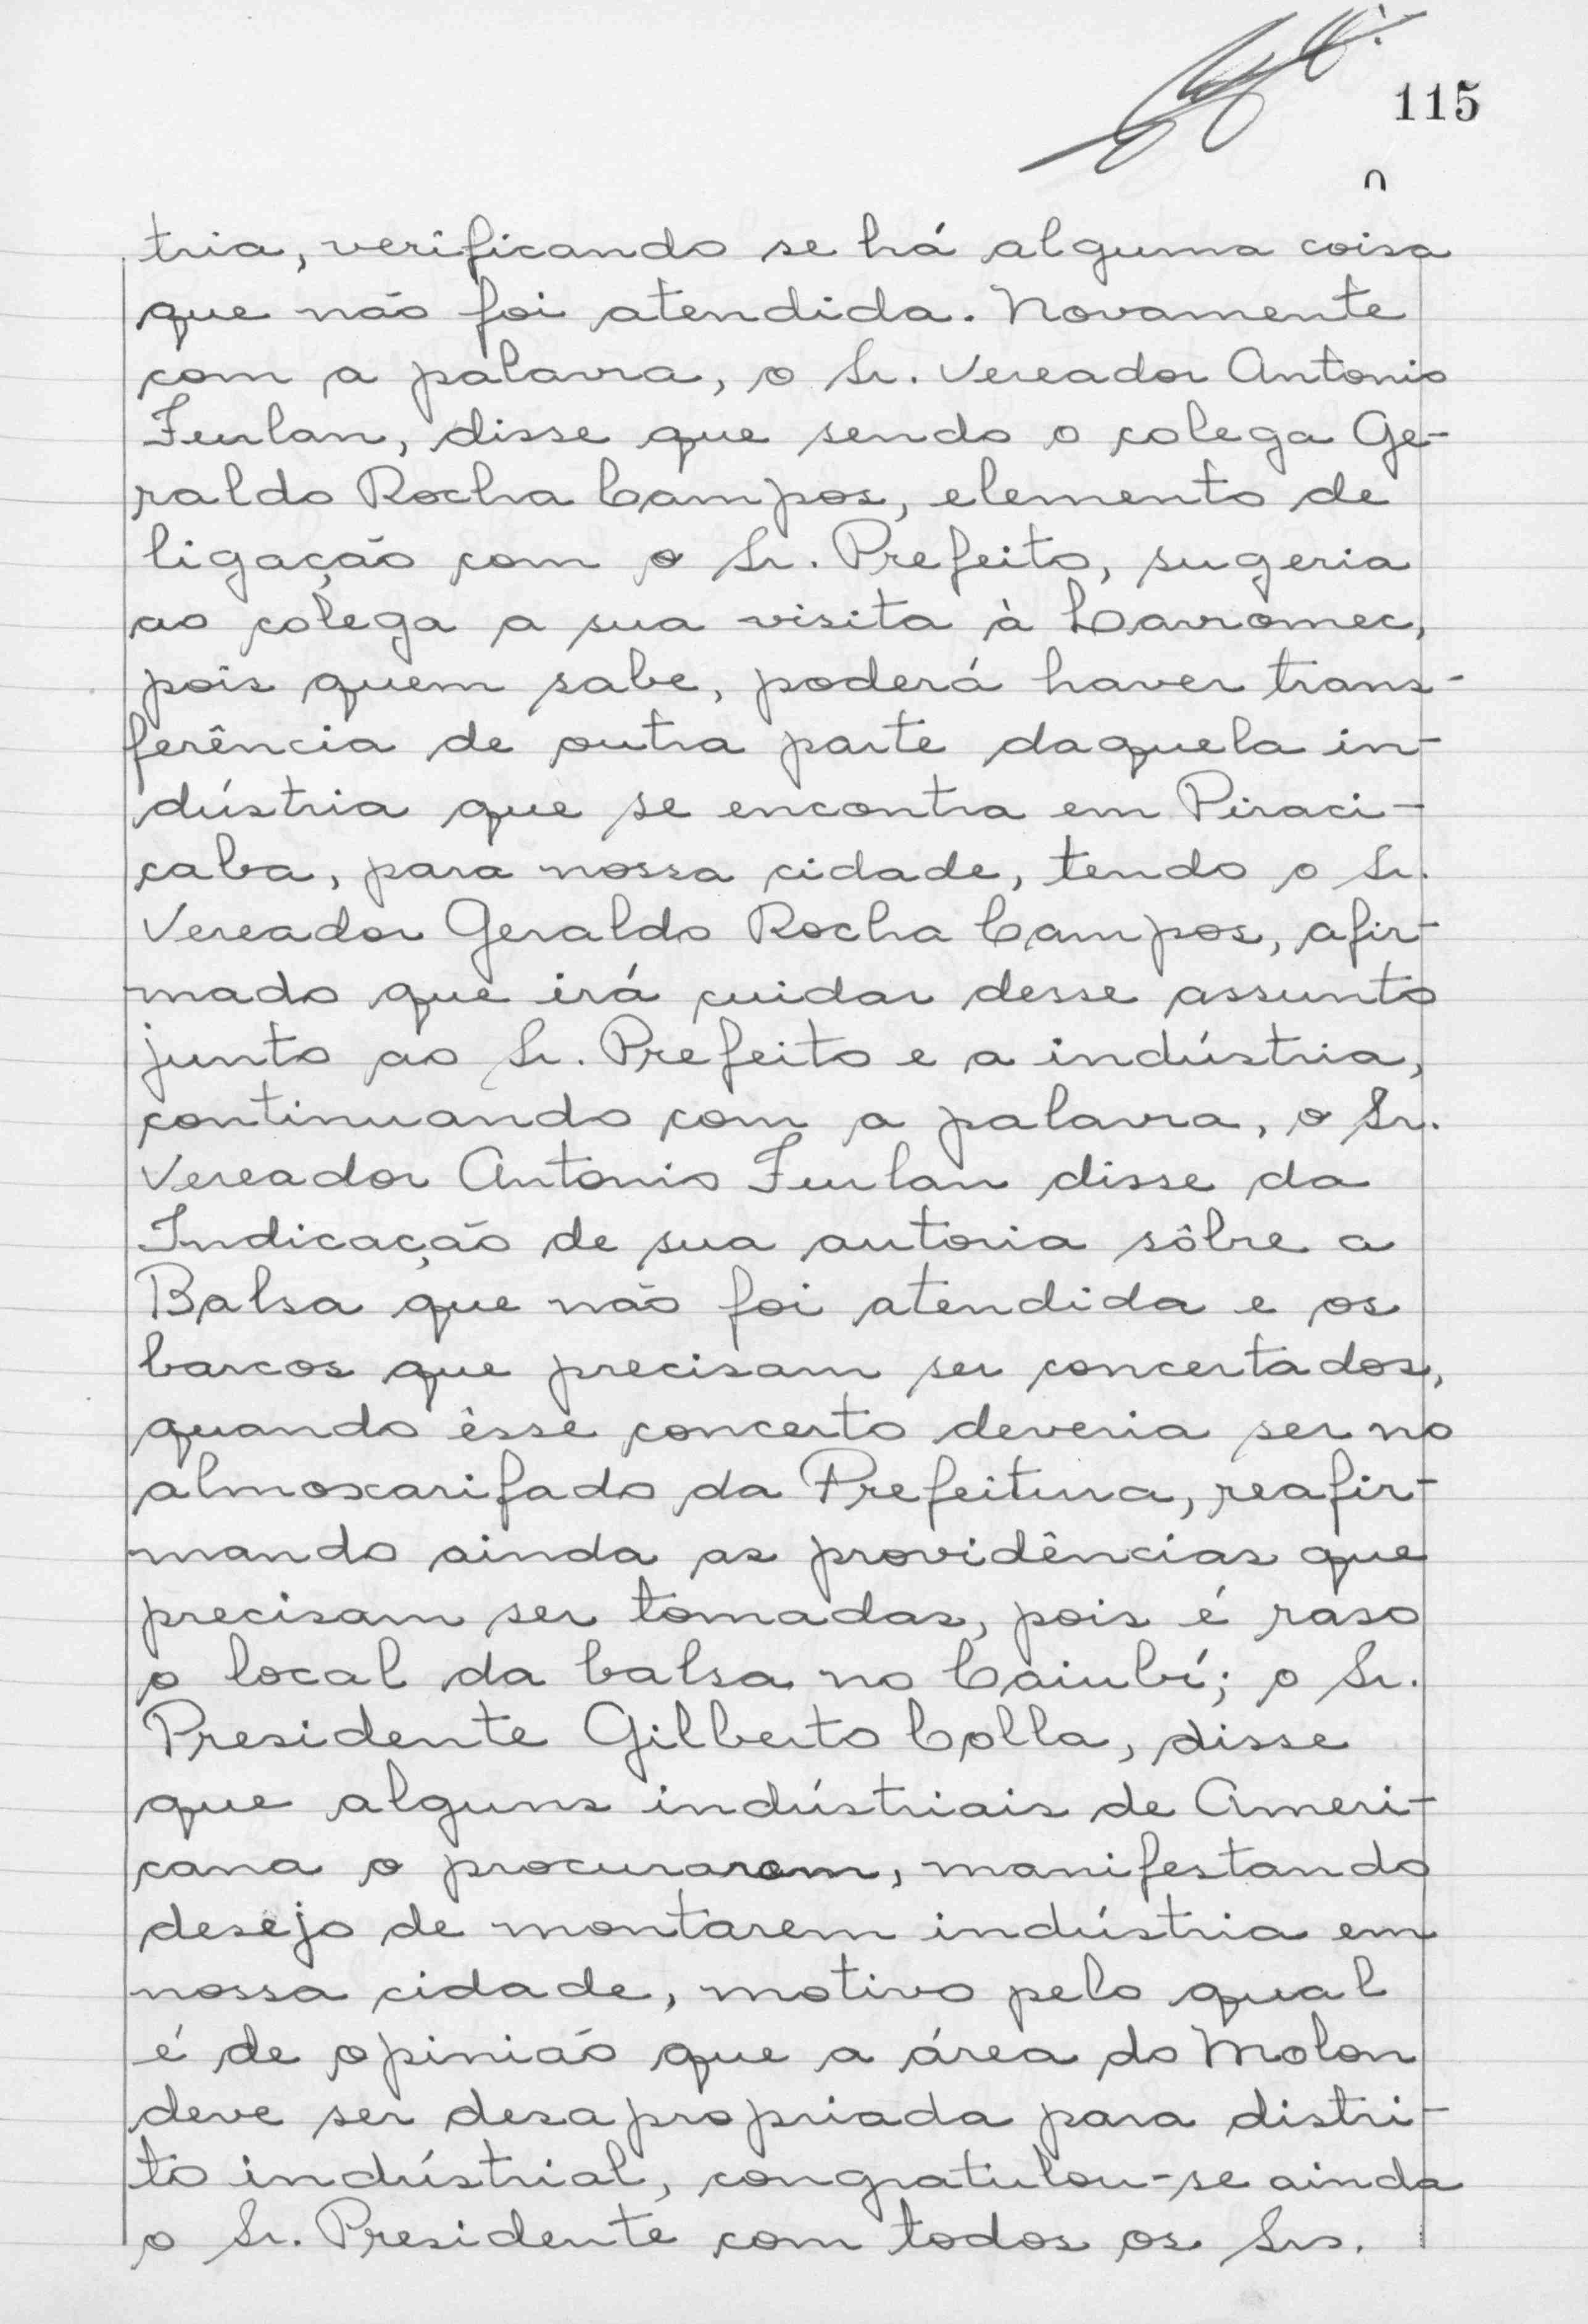 115
tria, verificando se há alguma coisa
que não foi atendida. Novamente
com a palavra, o Sr. Vereador Antonio
Furlan, disse que sendo o colega Ge-
raldo Rocha Campos, elemento de
ligação com o Sr. Prefeito, sugeria
ao colega a sua visita à Cavromec,
pois quem sabe, poderá haver trans-
ferência de outra parte daquela in-
dústria que se encontra em Piraci-
caba, para nossa cidade, tendo o Sr.
Vereador Geraldo Rocha Campos, afir-
mado que irá cuidar desse assunto
junto ao Sr. Prefeito e a indústria,
continuando com a palavra, o Sr.
Vereador Antonio Furlan disse da
Indicação de sua autoria sôbre a
Balsa que não foi atendida e os
barcos que precisam ser concertados,
quando êsse concerto deveria ser no
almoxarifado da Prefeitura, reafir-
mando ainda as providências que
precisam ser tomadas, pois é raso
o local da balsa no Caiubí; o Sr.
Presidente Gilberto Colla, disse
que alguns indústriais de Ameri-
cana o procuraram, manifestando
desejo de montarem indústria em
nossa cidade, motivo pelo qual
é de opinião que a área do Molon
deve ser desapropriada para distri-
to indústrial, congratulou-se ainda
o Sr. Presidente com todos os Srs.